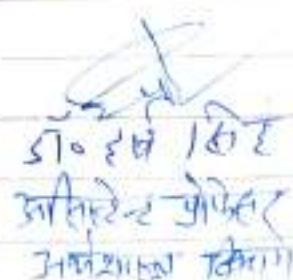 डॉ० हर्ष सिंह
असिस्टेन्ट प्रोफेसर
अर्थशास्त्र विभाग